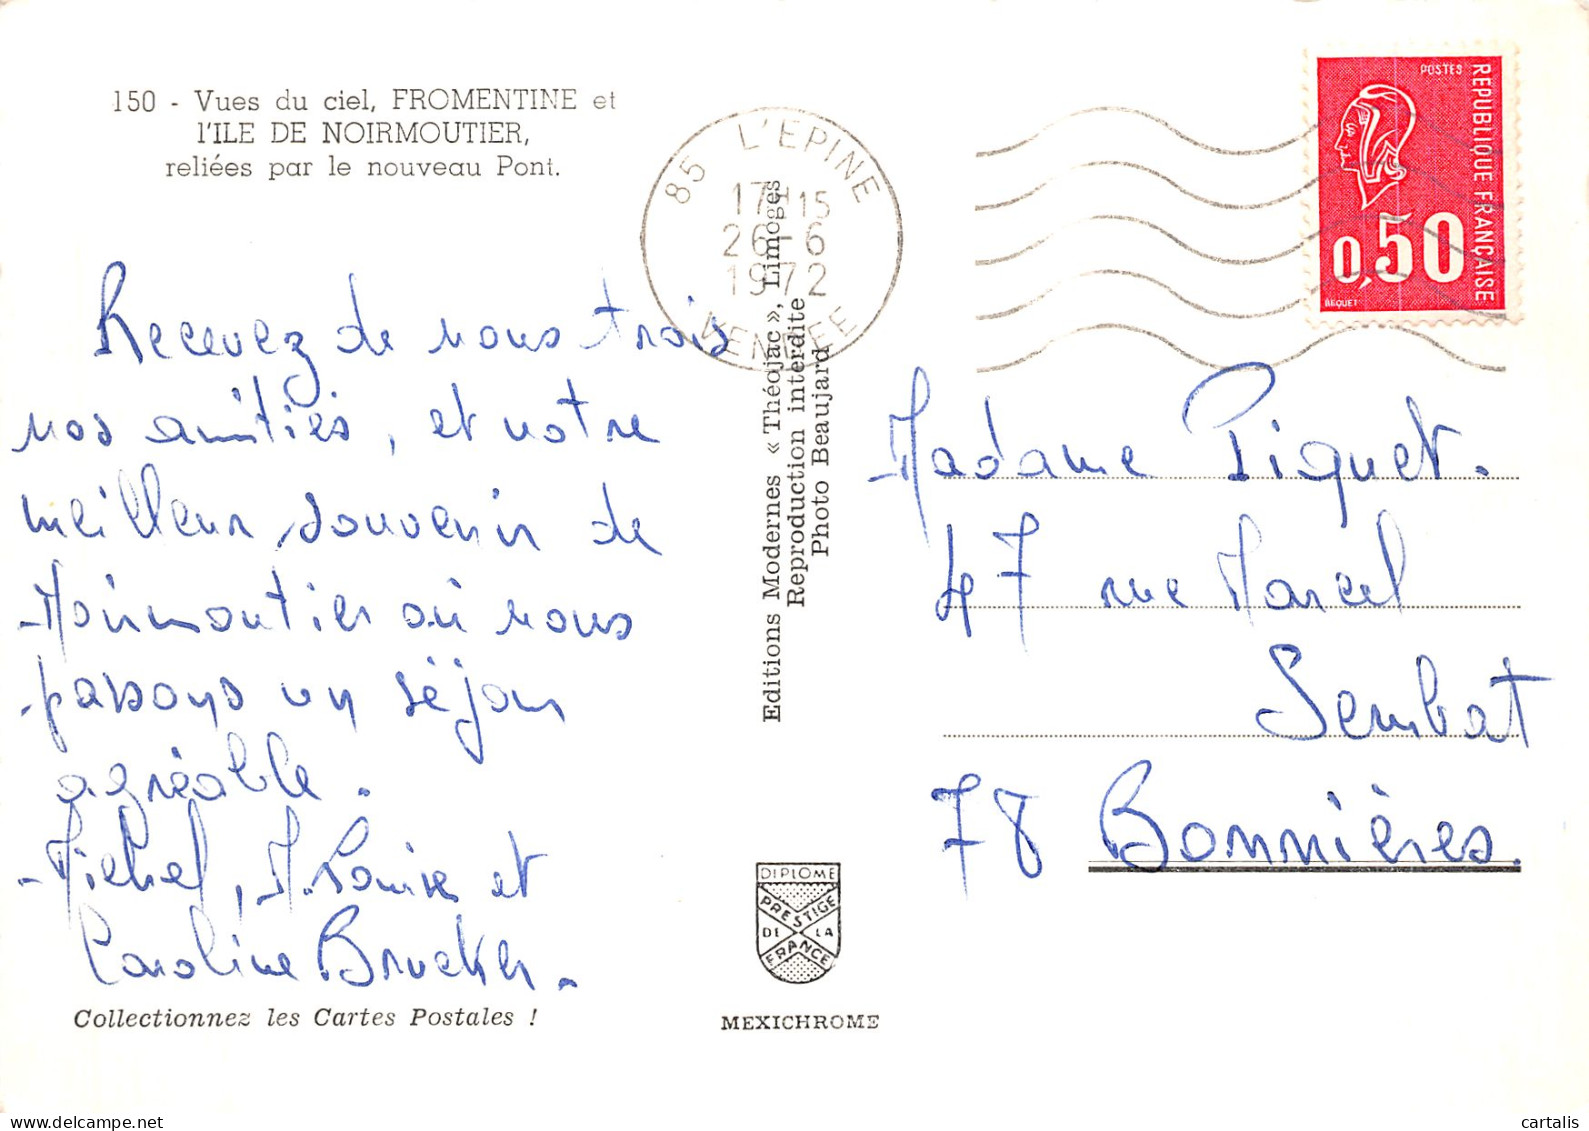 150 - Vues du ciel, FROMENTINE et
l'ILE DE NOIRMOUTIER,
reliées par le nouveau Pont.
Recevez de nous trois
nos amitiés, et notre
meilleur souvenir de
Noirmoutier où nous
passons un séjour
agréable.
Michel, M. Louise et
Caroline Brucker.
Collectionnez les Cartes Postales !
85 L'EPINE
17H15
26-6
1972
VENDEE
Editions Modernes « Théojac », Limoges
Reproduction interdite
Photo Beaujard
DIPLOME
PRESTIGE
DE LA
FRANCE
MEXICHROME
POSTES
REPUBLIQUE FRANÇAISE
0,50
BEQUET
Madame Piquet.
47 rue Marcel
Sembat
78 Bonnières.
delcampe.net
cartalis